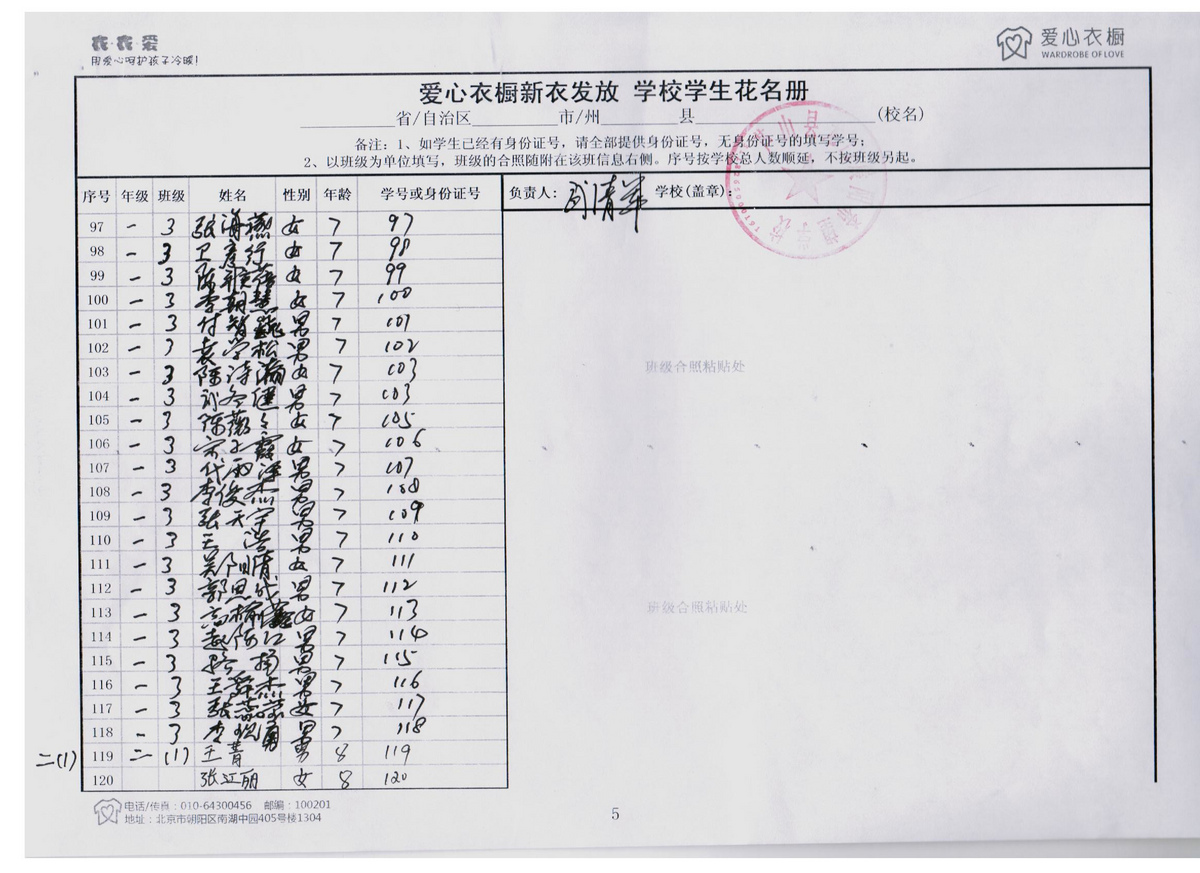 衣·衣·爱
用爱心呵护孩子冷暖!
爱心衣橱
WARDROBE OF LOVE
爱心衣橱新衣发放 学校学生花名册
省/自治区 市/州 县 (校名)
备注：1、如学生已经有身份证号，请全部提供身份证号，无身份证号的填写学号；
2、以班级为单位填写，班级的合照随附在该班信息右侧。序号按学校总人数顺延，不按班级另起。
序号 年级 班级 姓名 性别 年龄 学号或身份证号 负责人： 学校(盖章)：
97 一 3 张海燕 女 7 97
98 一 3 卫彦行 女 7 98
99 一 3 陈 女 7 99
100 一 3 李朝慧 女 7 100
101 一 3 付智 男 7 101
102 一 3 袁学松 男 7 102
103 一 3 陈诗涵 女 7 103
104 一 3 健 男 7 103
105 一 3 陈薇 女 7 105
106 一 3 宋子霞 女 7 106
107 一 3 代雨泽 男 7 107
108 一 3 李俊杰 男 7 108
109 一 3 张天宇 男 7 109
110 一 3 王浩 男 7 110
111 一 3 吴阳倩 女 7 111
112 一 3 郭思成 男 7 112
113 一 3 高 女 7 113
114 一 3 赵陈江 男 7 114
115 一 3 杨 男 7 115
116 一 3 王舜杰 男 7 116
117 一 3 张蕊 女 7 117
118 一 3 李 男 7 118
二(1) 119 二 (1) 王菁 男 8 119
120 张江丽 女 8 120
班级合照粘贴处
班级合照粘贴处
电话/传真：010-64300456 邮编：100201
地址：北京市朝阳区南湖中园405号楼1304
5